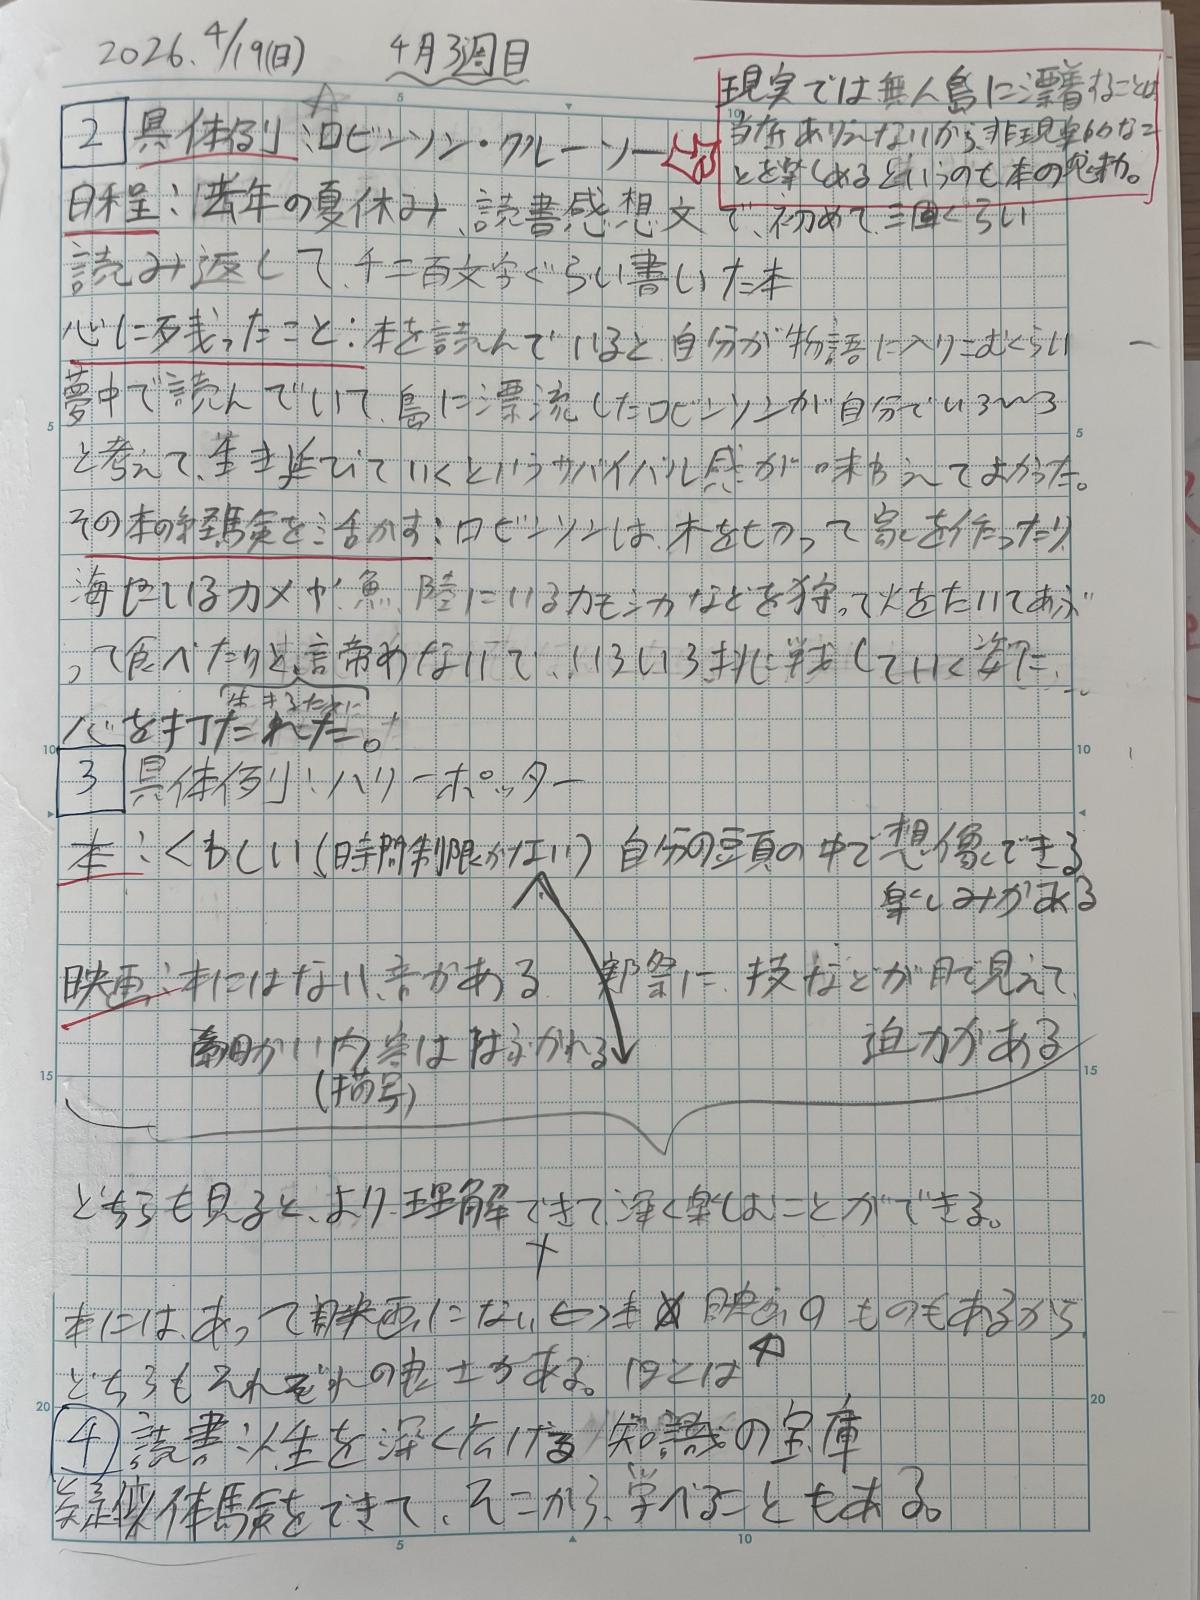 2026.4/19(日) 4月3週目
現実では無人島に漂着することは
ありえないから非現実的なこ
とを楽しめるというのも本の魅力。
2 具体例:ロビンソン・クルーソー
日程:去年の夏休み、読書感想文で、初めて、三回くらい
読み返して、千二百文字ぐらい書いた本
心に残ったこと:本を読んでいると自分が物語に入りこむくらい
夢中で読んでいて、島に漂流したロビンソンが自分でいろいろ
と考えて、生き延びていくというサバイバル感が味わえてよかった。
その本の経験を活かす:ロビンソンは、木をもつかって家を作ったり、
海にいるカメや魚、陸にいるカモシカなどを狩って火をたいてあぶ
って食べたりと、諦めないで、いろいろ挑戦していく姿に、
生きるために
心を打たれた。
3 具体例:ハリーポッター
本:くわしい(時間制限がない) 自分の頭の中で想像できる
楽しみがある
映画:本にはない、音がある 実際に、技などが目で見えて、
細かい内容ははぶかれる 迫力がある
(描写)
どちらも見ると、より理解できて、深く楽しむことができる。
+
本には、あって映画にない⇔本 映画のものもあるから、
どちらもそれぞれの良さがある。 ほとは
4 読書:人生を深く広げる知識の宝庫
疑似体験をできて、そこから、学べることもある。
5 10 15 20
5 10 15 20
5 10
5 10